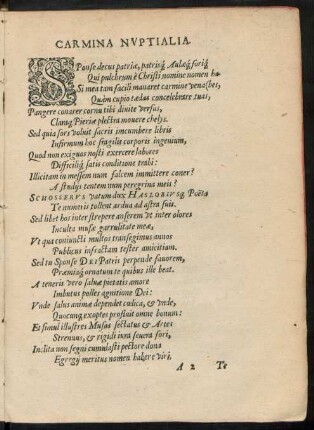 CARMINA NVPTIALIA.
SPonse decus patriæ, patrisq́; Aulæq́; foriq́;
Qui pulchrum è Christi nomine nomen ha-
Si mea tam facili manaret carmine vena (bes,
Quàm cupio tædas concelebrare tuas,
Pangere conarer cornu tibi diuite versus,
Claraq́; Pieriæ plectra mouere chelys.
Sed quia sors voluit sacris incumbere libris
Infirmum hoc fragilis corporis ingenium,
Quod non exiguos nosti exercere labores
Difficiliq́; satis conditione trahi:
Illicitam in messem num falcem immittere coner?
A studijs tentem num peregrina meis?
SCHOSSERVS vatum dux HASLOBIVSq́; Poëta
Te numeris tollent ardua ad astra suis.
Sed libet hos inter strepere anserem vt inter olores
Inculta musæ garrulitate meæ,
Vt qua coniuncti multos transegimus annos
Publicus infractam tester amicitiam.
Sed tu Sponse DEI Patris perpende fauorem,
Præmioq́; ornatum te quibus ille beat.
A teneris vero saluæ pietatis amore
Imbutus polles agnitione Dei:
Vnde salus animæ dependet cælica, & vnde,
Quocunq́; exoptes profluit omne bonum:
Et simul illustres Musas sectatus & Artes
Strenuus, & rigidi iura seuera fori,
Inclita non segni cumulasti pectore dona
Egregij meritus nomen habere viri.
A 2 Te